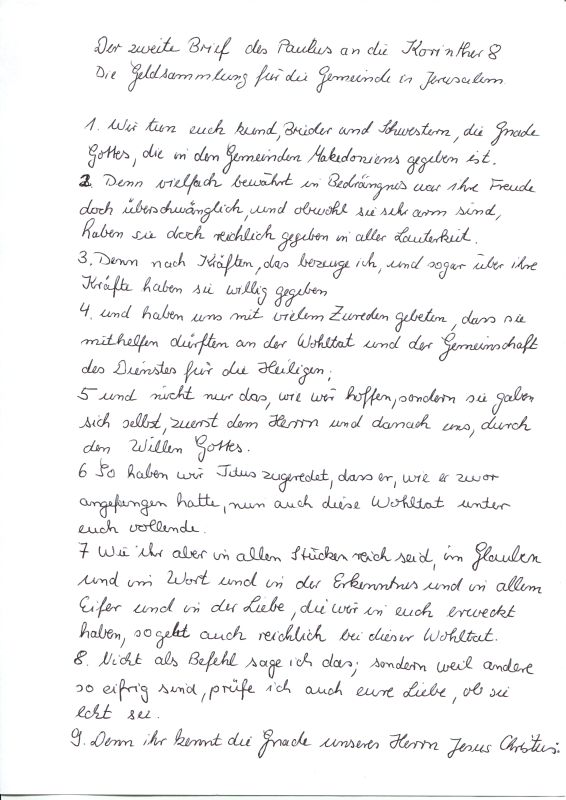 Der zweite Brief des Paulus an die Korinther 8
Die Geldsammlung für die Gemeinde in Jerusalem
1. Wir tun euch kund, Brüder und Schwestern, die Gnade
Gottes, die in den Gemeinden Makedoniens gegeben ist.
2. Denn vielfach bewährt in Bedrängnis war ihre Freude
doch überschwänglich, und obwohl sie sehr arm sind,
haben sie doch reichlich gegeben in aller Lauterkeit.
3. Denn nach Kräften, das bezeuge ich, und sogar über ihre
Kräfte haben sie willig gegeben
4. und haben uns mit vielem Zureden gebeten, dass sie
mithelfen dürften an der Wohltat und der Gemeinschaft
des Dienstes für die Heiligen;
5 und nicht nur das, wie wir hoffen, sondern sie gaben
sich selbst, zuerst dem Herrn und danach uns, durch
den Willen Gottes.
6 So haben wir Titus zugeredet, dass er, wie er zuvor
angefangen hatte, nun auch diese Wohltat unter
euch vollende.
7 Wie ihr aber in allen Stücken reich seid, im Glauben
und im Wort und in der Erkenntnis und in allem
Eifer und in der Liebe, die wir in euch erweckt
haben, so gebt auch reichlich bei dieser Wohltat.
8. Nicht als Befehl sage ich das; sondern weil andere
so eifrig sind, prüfe ich auch eure Liebe, ob sie
echt sei.
9. Denn ihr kennt die Gnade unseres Herrn Jesus Christus: